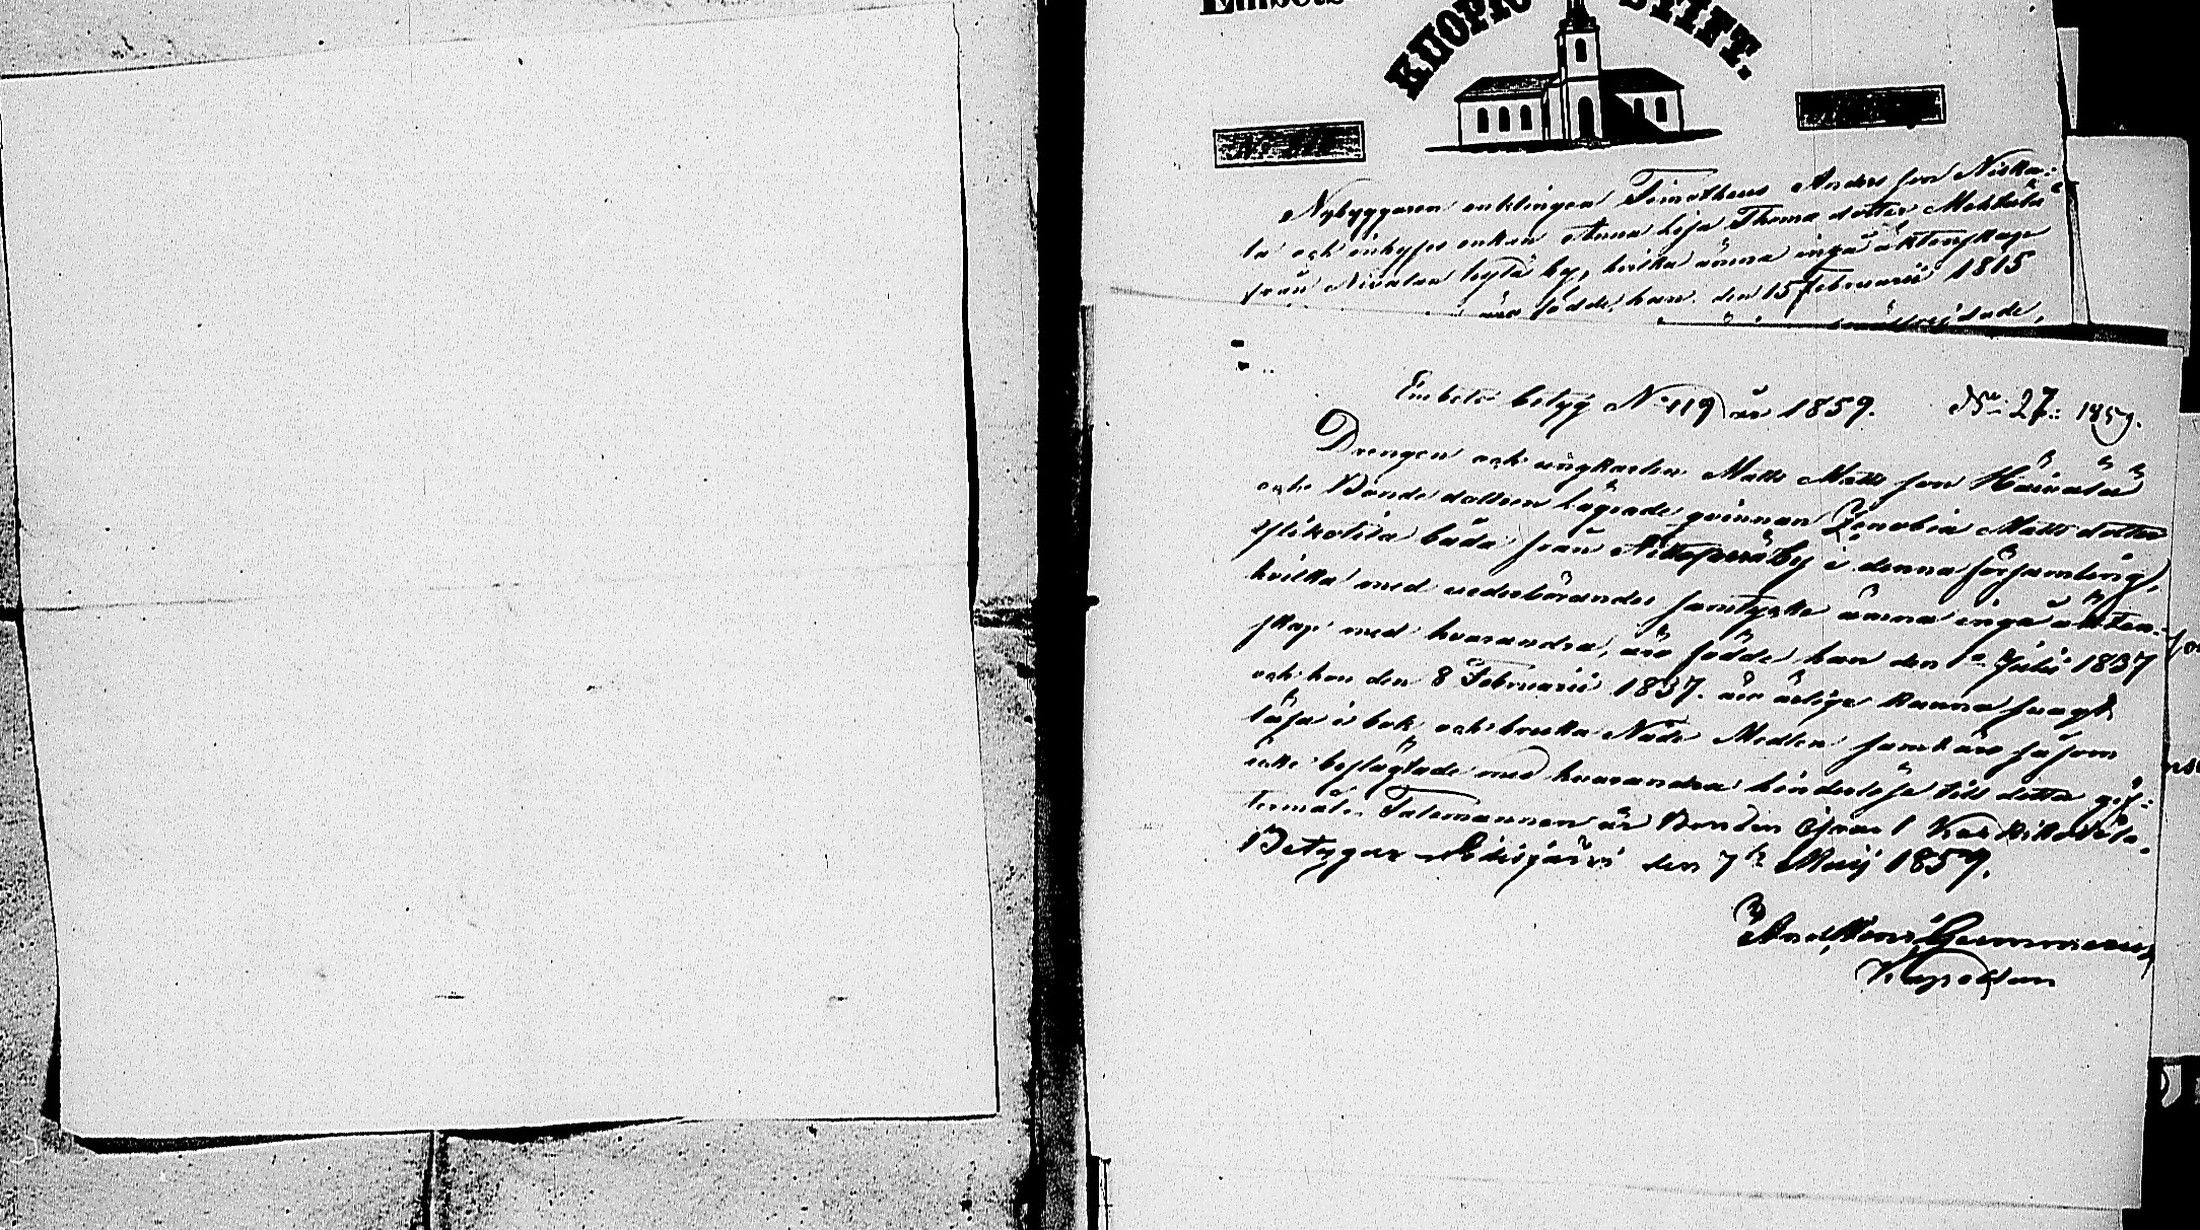 Embets
KUOPIO STIFT.
Nybyggaren enklingen Timotheus Anders son Niska-
la och inhyses enkan Anna Lisa Thomæ dotter Mehtälä
från Nivalan kylä by, hvilka ämna ingå äktenskap
äro födde, han den 15 Februarii 1815
Embets betyg N° 119 år 1859. N° 27. 1859.
Drengen och ungkarlen Matts Matts son
och Bonde dottren lägrade qvinnan Zenobia Matts dotter
båda från by i denna församling,
hvilka med vederbörandes samtycke ämna ingå äkten-
skap med hvarandra, äro födde han den Julii 1837
och hon den 8 Februarii 1837. äro ärlige kunna svagt
läsa i bok, och bruka Nåde Medlen samt äro såsom
icke beslägtade med hvarandra hinderlöse till detta gif-
termål. Talemannen är Bonden Israel
Betygar den 7 Maij 1859.
Kapellan